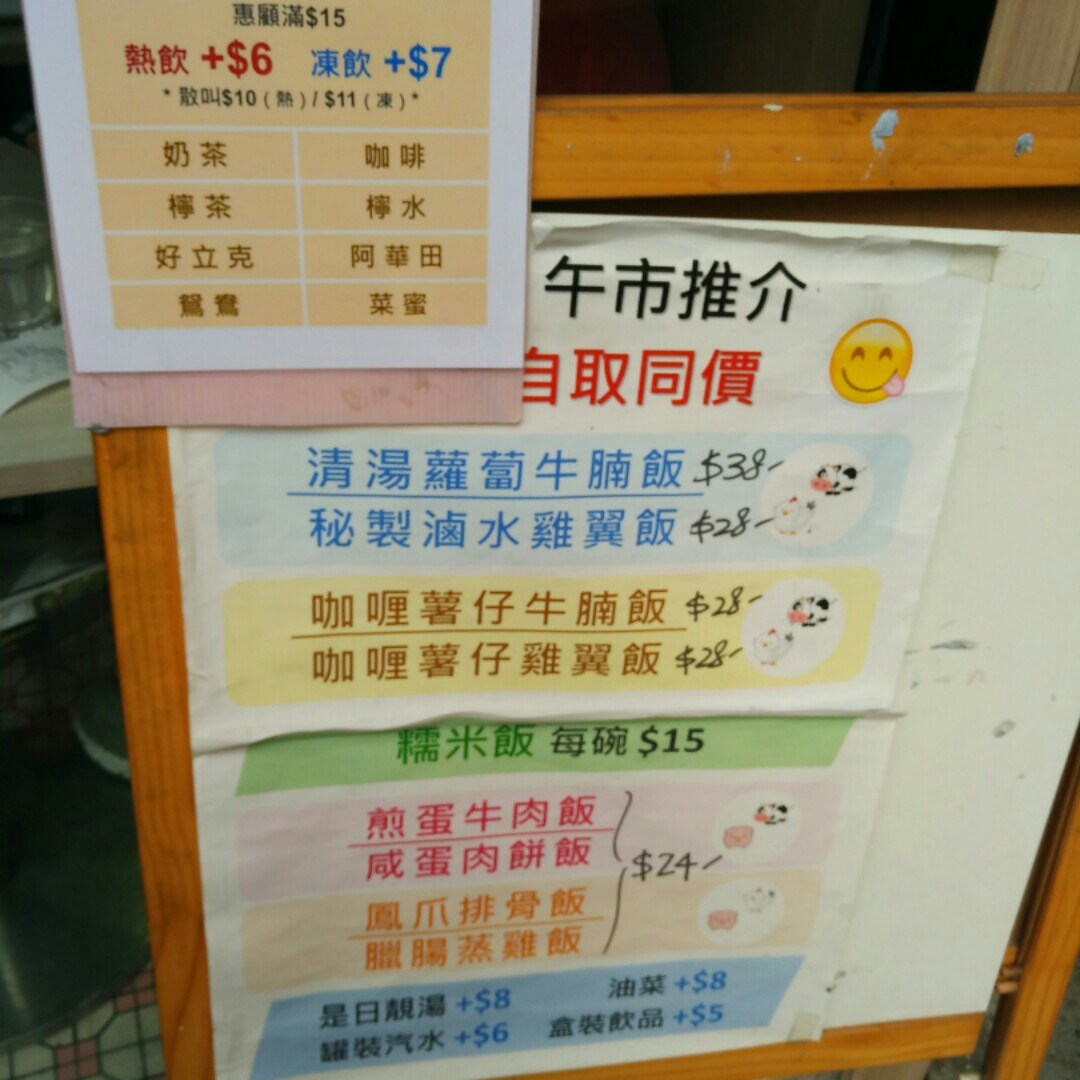 惠顧滿$15
熱飲 +$6 凍飲 +$7
*散叫$10(熱)/$11(凍)*
奶茶 咖啡
檸茶 檸水
好立克 阿華田
鴛鴦 菜蜜
午市推介
自取同價
清湯蘿蔔牛腩飯 $38-
秘製滷水雞翼飯 $28-
咖喱薯仔牛腩飯 $28-
咖喱薯仔雞翼飯 $28-
糯米飯 每碗 $15
煎蛋牛肉飯
咸蛋肉餅飯
$24-
鳳爪排骨飯
臘腸蒸雞飯
是日靚湯 +$8 油菜 +$8
罐裝汽水 +$6 盒裝飲品 +$5